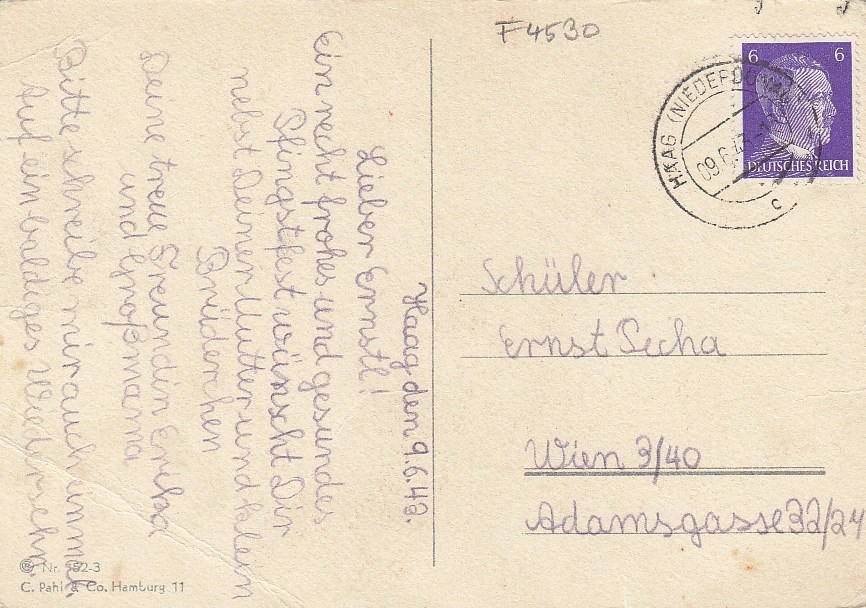 F4530
6 6
DEUTSCHES REICH
HAAG (NIEDERDONAU)
09.6.43
c
Haag den 9.6.43.
Lieber Ernstl!
Ein recht frohes und gesundes
Pfingstfest wünscht Dir
nebst Deiner Mutter und klein
Brüderchen
Deine treue Freundin Erika
und Großmama
Bitte schreibe mir auch einmal.
Auf ein baldiges Wiedersehn.
Schüler
Ernst Secha
Wien 3/40
Adamsgasse 32/24
Nr. 182-3
C. Pahl & Co. Hamburg 11